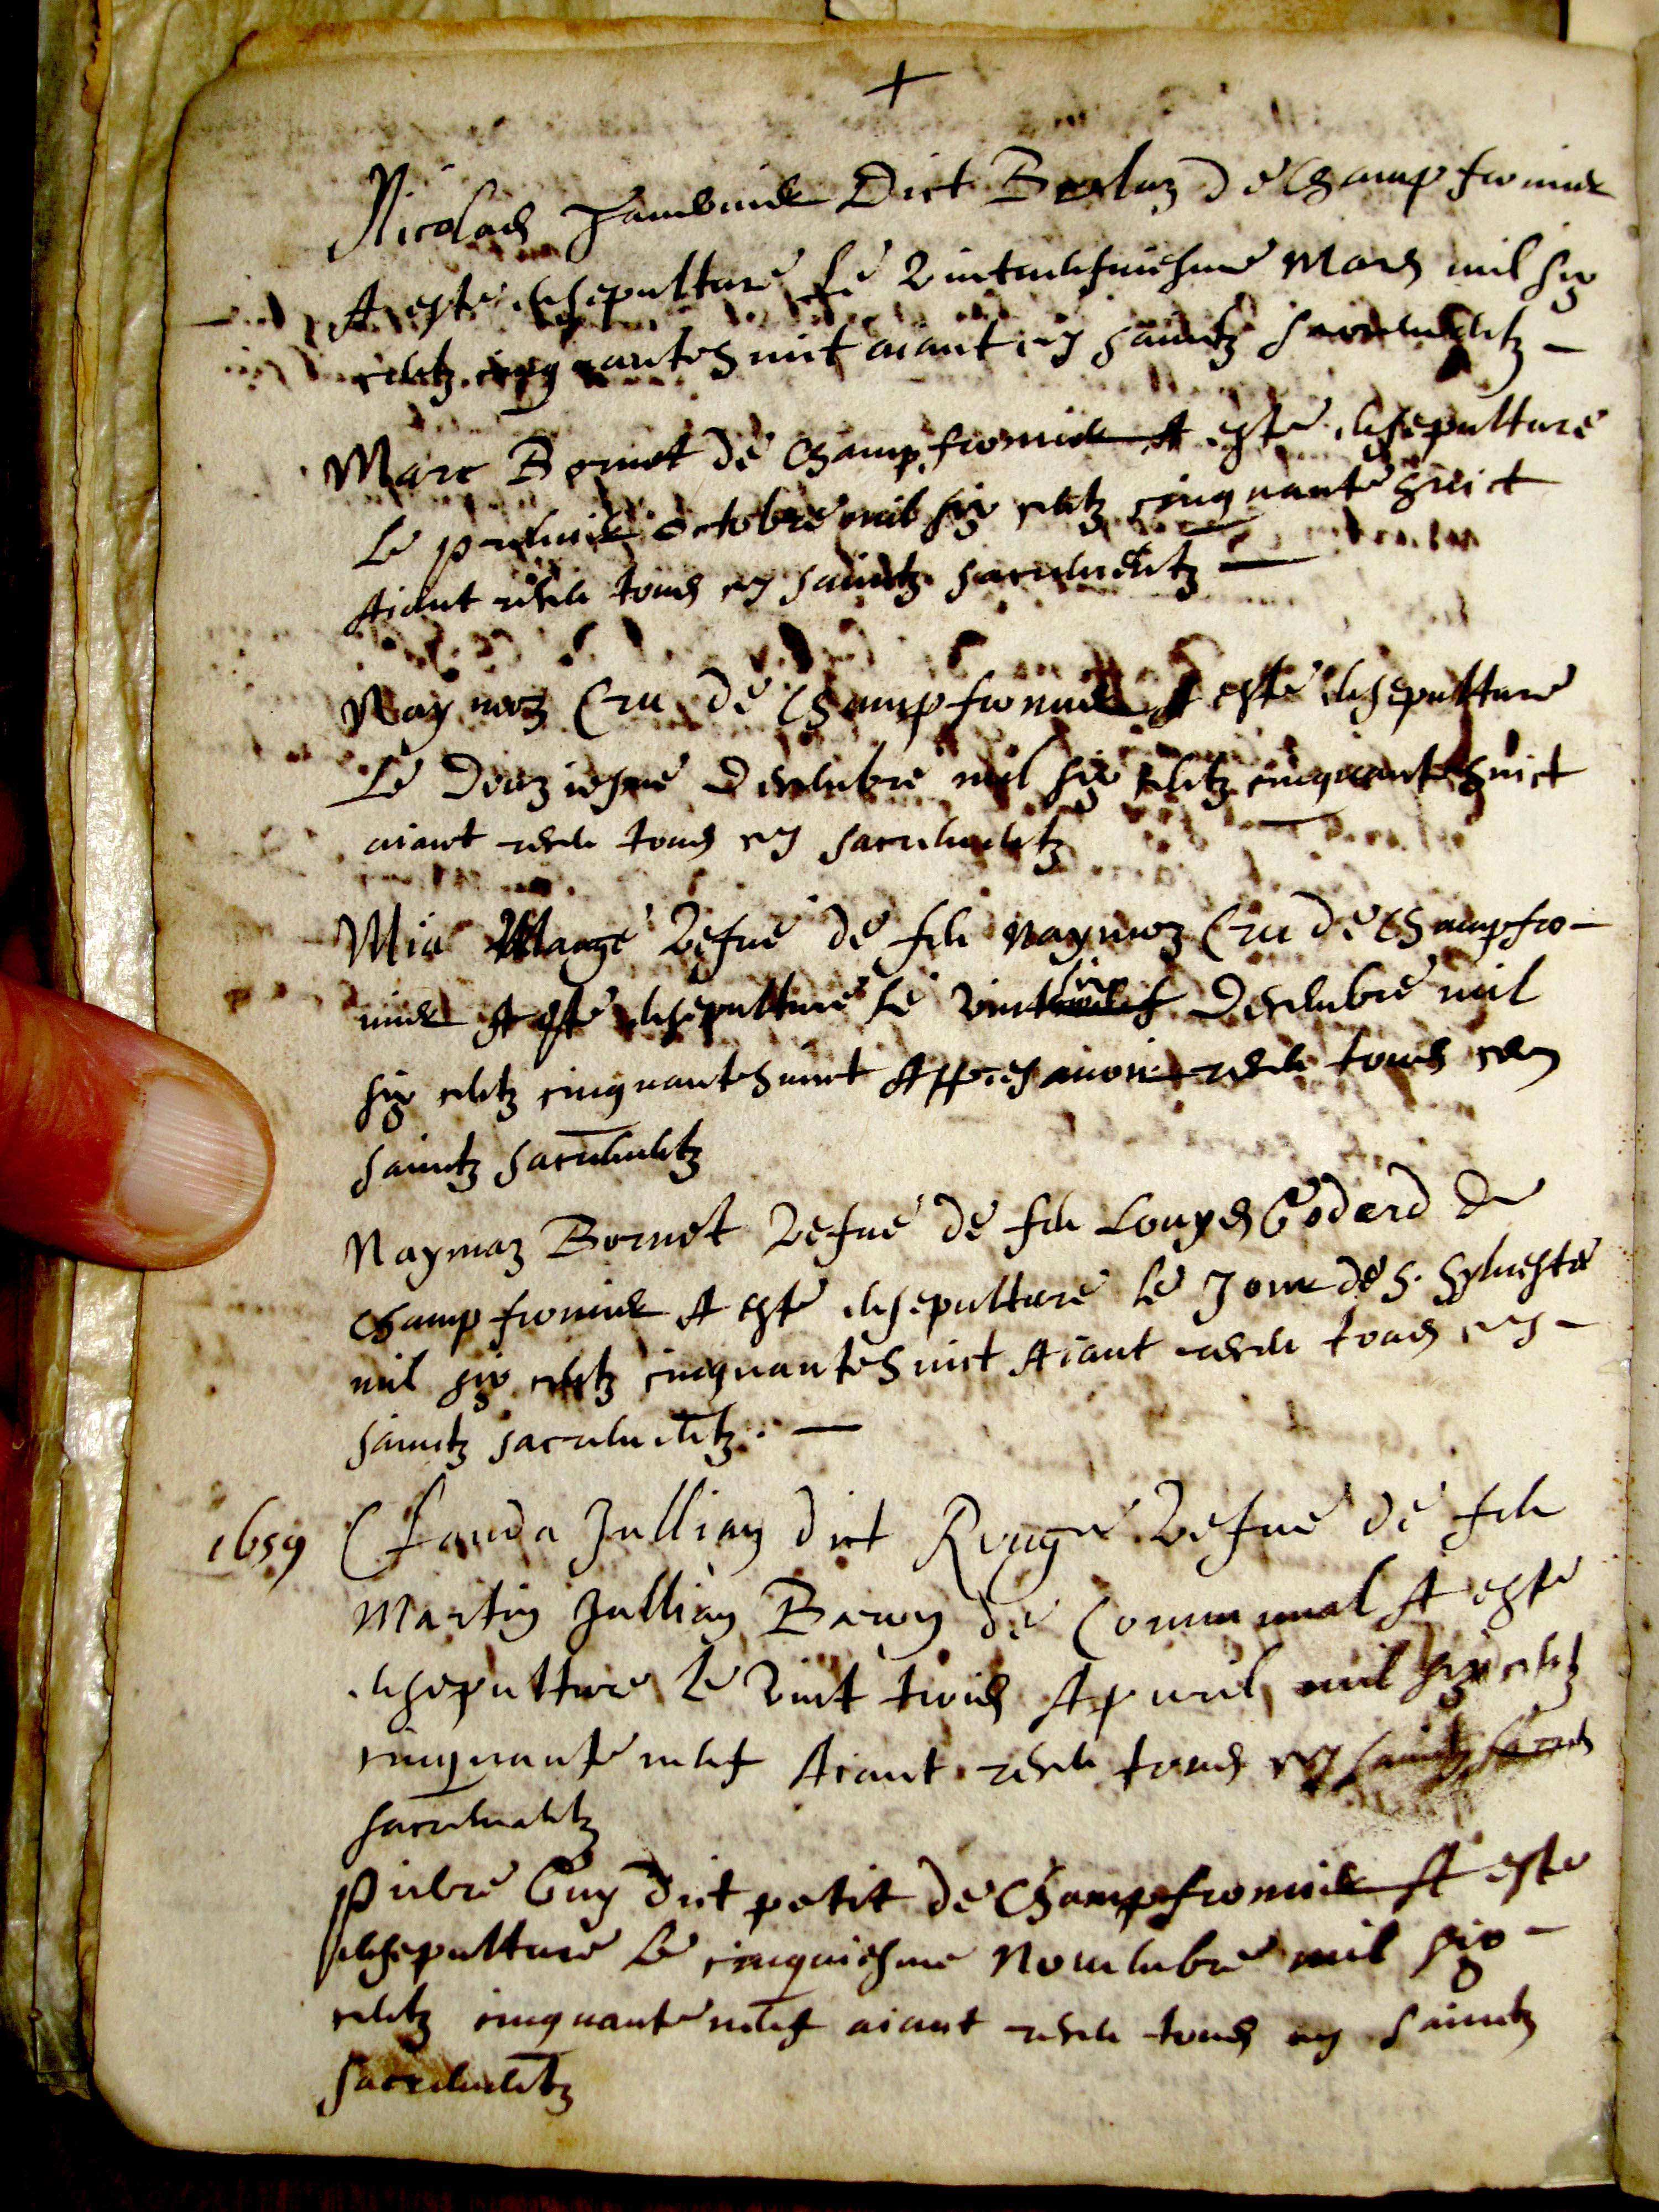 +
Nicolas Dict de Champfromier
A esté ensepulturé Le vintneufviesme Mars mil six
centz cinquante huict aiant ses sainctz sacrementz
Marc Bornet de Champfromier A esté ensepulturé
Le premier octobre mil six centz cinquante huict
Aiant receu tous ses sainctz sacrementz
Naymoz Cru de Champfromier A esté ensepulturé
Le Decembre mil six centz cinquante huict
aiant receu tous ses sacrementz
Mia Mange vefve de feu Naymoz Cru de Champfro-
mier A esté ensepulturé Le vint six Decembre mil
six centz cinquante huict Appres avoir receu tous ses
sainctz sacrementz
Naymaz Bornet vefve de feu Louys Godard de
Champfromier A esté ensepulturé Le Jour de S. Sylvestre
mil six centz cinquante huict Aiant receu tous ses
sainctz sacrementz.
1659 Clauda Jullian dict Rouge vefve de feu
Martin Jullian Baron de Communal A esté
ensepulturé Le vint trois Apvril mil six centz
cinquante neuf Aiant receu tous ses sainctz
sacrementz
Pierre Guy dict petit de Champfromier A esté
ensepulturé Le cinquiesme Novembre mil six
centz cinquante neuf aiant receu tous ses sainctz
sacrementz